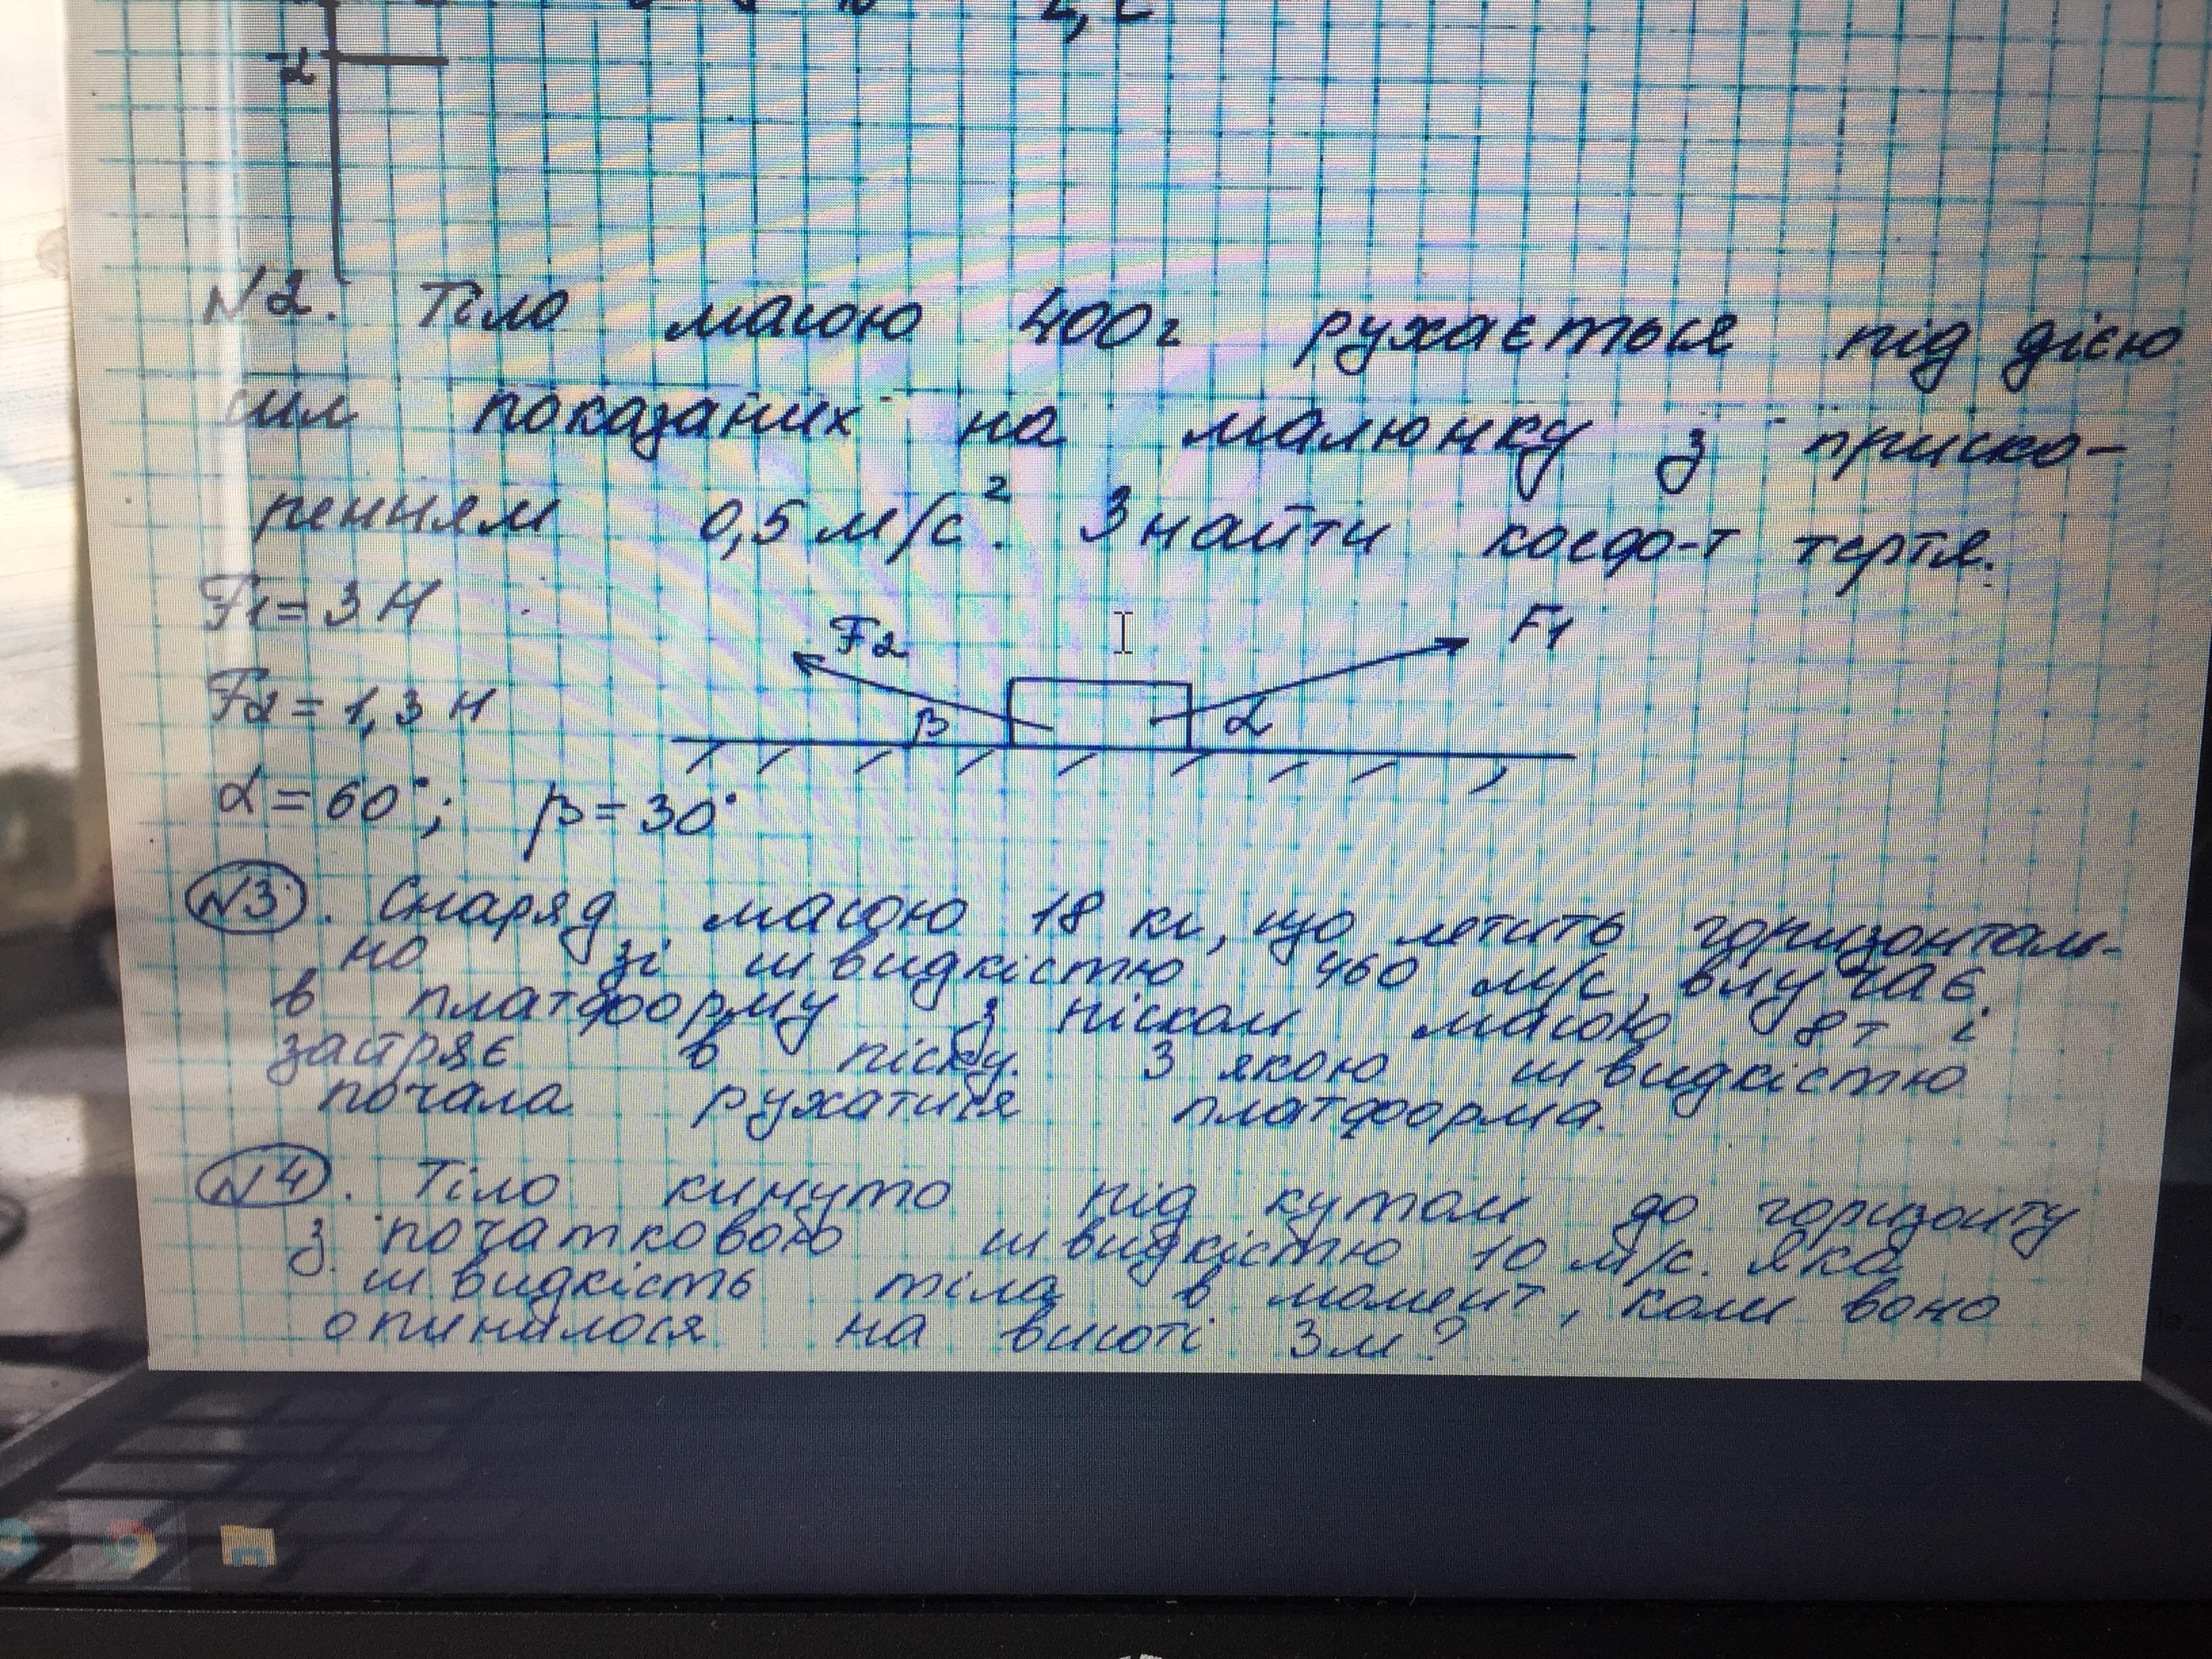 -2
N2. Тіло масою 400г рухається під дією
сил показаних на малюнку з приско-
ренням 0,5 м/с². Знайти коеф-т тертя.
F1 = 3 Н
F2
F1
F2 = 1,3 Н
β
α
α = 60°; β = 30°
N3. Снаряд масою 18 кг, що летить горизонталь-
но зі швидкістю 460 м/с, влучає
в платформу з піском масою 8т і
застряє в піску. З якою швидкістю
почала рухатися платформа.
N4. Тіло кинуто під кутом до горизонту
з початковою швидкістю 10 м/с. Яка
швидкість тіла в момент, коли воно
опинилося на висоті 3м?